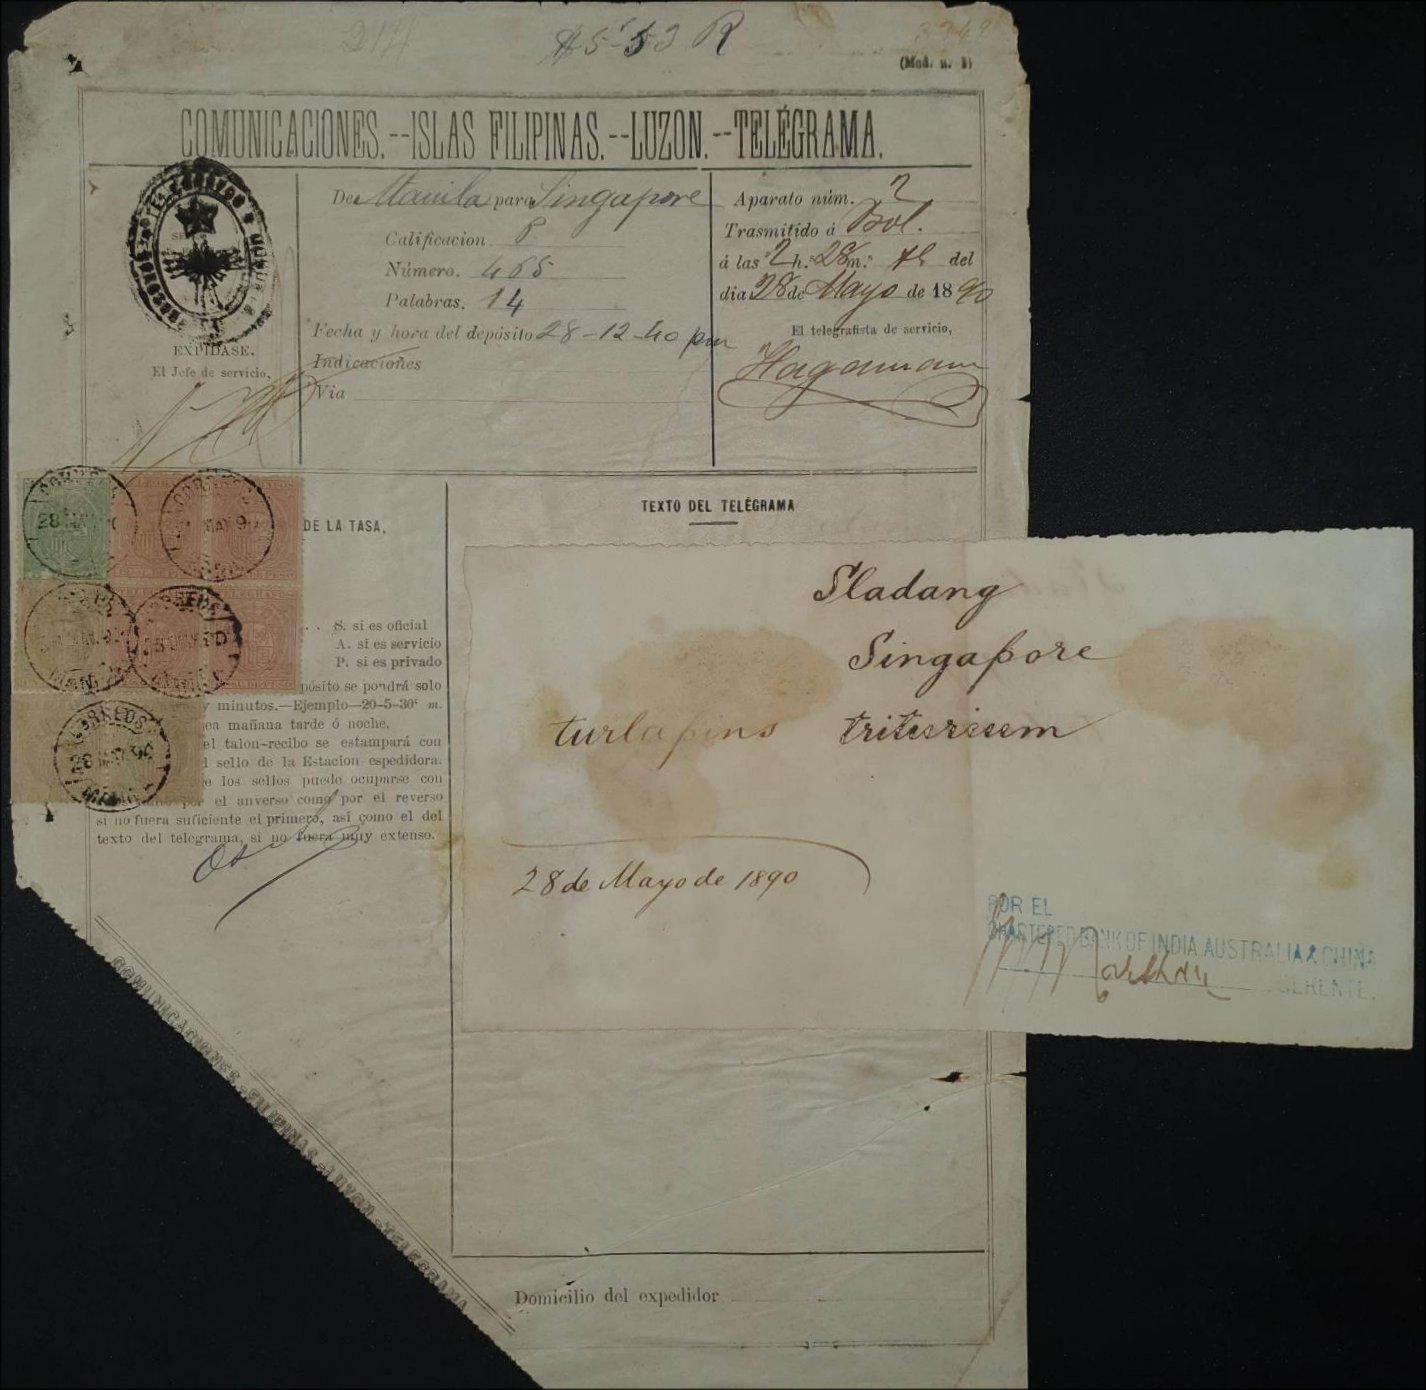 (Mod. n. 3)
COMUNICACIONES.--ISLAS FILIPINAS.--LUZON.--TELÉGRAMA.
EXPÍDASE.
El Jefe de servicio,
De Manila para Singapore
Calificacion P
Número. 465
Palabras. 14
Fecha y hora del depósito 28-12-40 pm
Indicaciones
Via
Aparato núm. 2
Trasmitido á Bol.
á las 2 h.s 28 m.s del
dia 28 de Mayo de 1890
El telegrafista de servicio,
DE LA TASA.
S. si es oficial
A. si es servicio
P. si es privado
pósito se pondrá solo
y minutos.—Ejemplo—20-5-30' m.
ea mañana tarde ó noche.
el talon-recibo se estampará con
l sello de la Estacion espedidora.
e los sellos puede ocuparse con
por el anverso como por el reverso
si no fuera suficiente el primero, así como el del
texto del telegrama, si no fuera muy extenso.
TEXTO DEL TELÉGRAMA
Sladang
Singapore
turlapins
28 de Mayo de 1890
POR EL
CHARTERED BANK OF INDIA AUSTRALIA & CHINA
GERENTE.
COMUNICACIONES.-FILIPINAS.-LUZON.-TELEGRAMA
Domicilio del expedidor